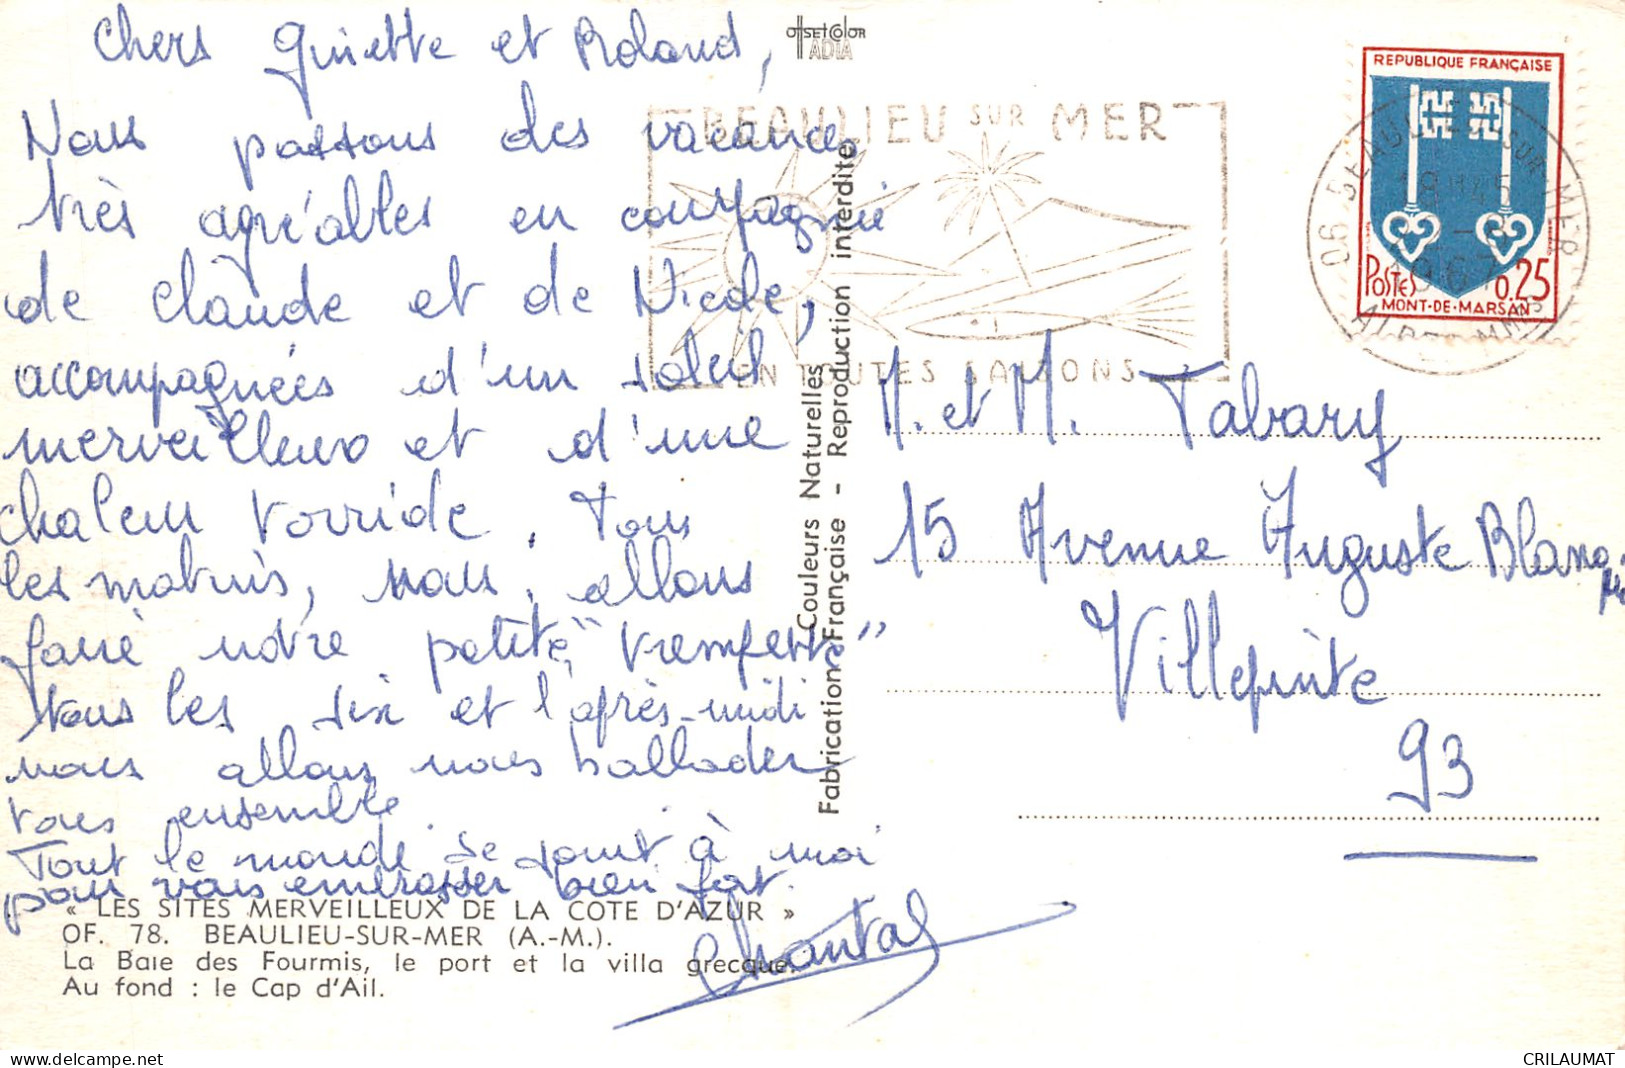 Chers Guiette et Roland,
Nous passons des vacances
très agréables en compagnie
de Claude et de Nicole,
accompagnées d'un soleil
merveilleux et d'une
chaleur torride. Tous
les matins, nous allons
faire notre petite "trempette"
tous les six et l'après-midi
nous allons nous ballader
tous ensemble.
Tout le monde se joint à moi
pour vous embrasser bien fort.
Chantal
« LES SITES MERVEILLEUX DE LA COTE D'AZUR »
OF. 78. BEAULIEU-SUR-MER (A.-M.).
La Baie des Fourmis, le port et la villa grecque.
Au fond : le Cap d'Ail.
OffsetColor
ADIA
Couleurs Naturelles
Fabrication Française - Reproduction interdite
BEAULIEU SUR MER
EN TOUTES SAISONS
REPUBLIQUE FRANÇAISE
POSTES 0.25
MONT-DE-MARSAN
06 BEAULIEU SUR MER
1967
M. et M. Tabary
15 Avenue Auguste Blanqui
Villepinte
93
delcampe.net
CRILAUMAT